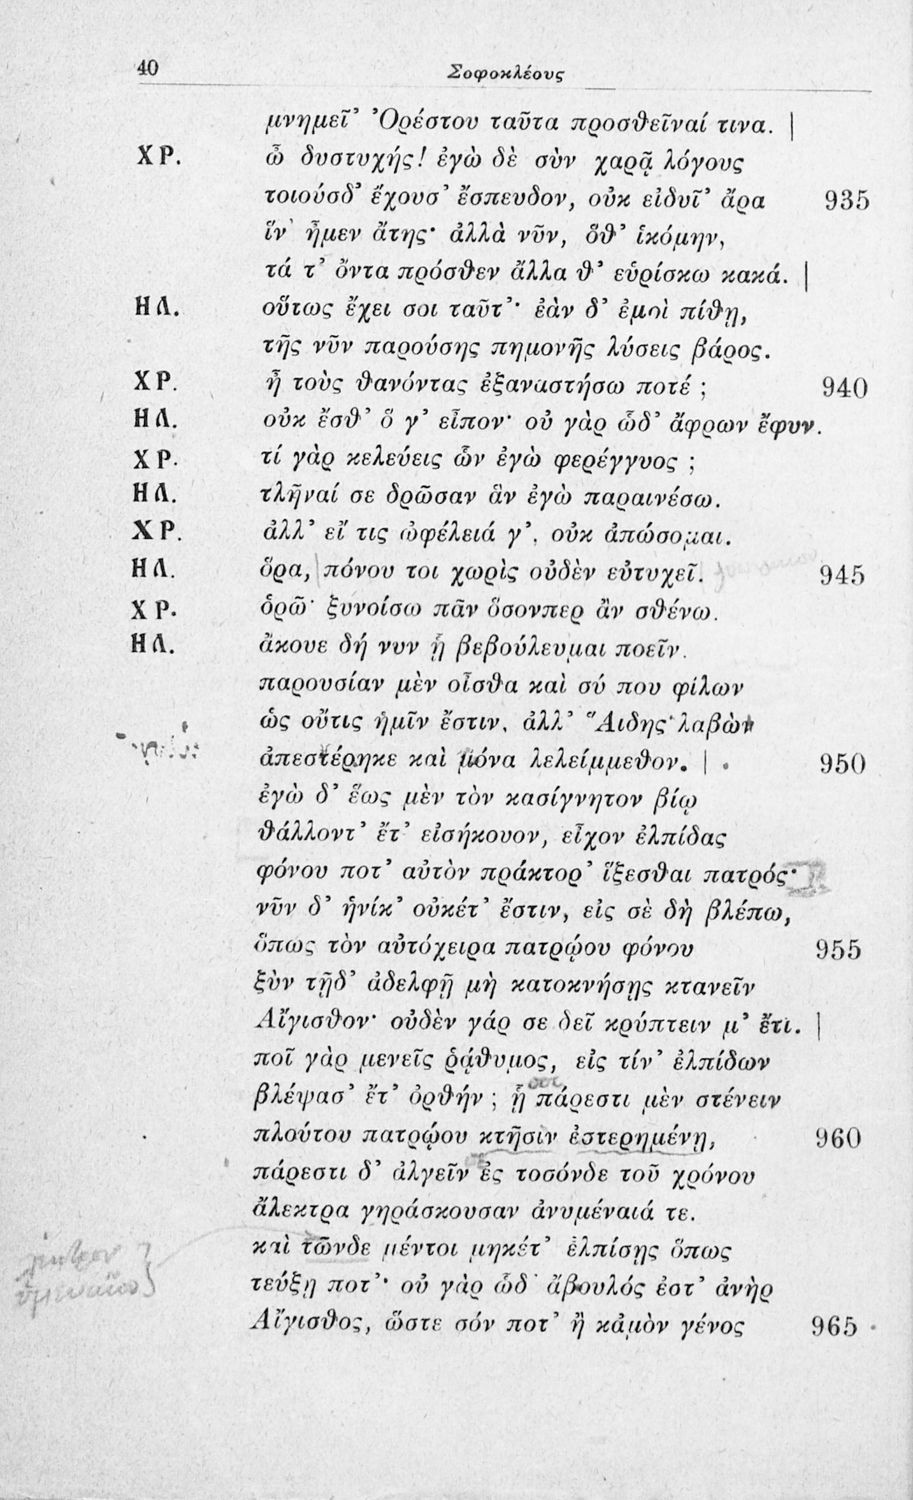 40 Σοφοκλέους
μνημεῖ' Ὀρέστου ταῦτα προσθεῖναί τινα. |
ΧΡ. ὦ δυστυχής! ἐγὼ δὲ σὺν χαρᾷ λόγους
τοιούσδ' ἔχουσ' ἔσπευδον, οὐκ εἰδυῖ' ἄρα 935
ἵν' ἦμεν ἄτης· ἀλλὰ νῦν, ὅθ' ἱκόμην,
τά τ' ὄντα πρόσθεν ἄλλα θ' εὑρίσκω κακά. |
ΗΛ. οὕτως ἔχει σοι ταῦτ'· ἐὰν δ' ἐμοὶ πίθῃ,
τῆς νῦν παρούσης πημονῆς λύσεις βάρος.
ΧΡ. ἦ τοὺς θανόντας ἐξαναστήσω ποτέ ; 940
ΗΛ. οὐκ ἔσθ' ὅ γ' εἶπον· οὐ γὰρ ὧδ' ἄφρων ἔφυν.
ΧΡ. τί γὰρ κελεύεις ὧν ἐγὼ φερέγγυος ;
ΗΛ. τλῆναί σε δρῶσαν ἃν ἐγὼ παραινέσω.
ΧΡ. ἀλλ' εἴ τις ὠφέλειά γ', οὐκ ἀπώσομαι.
ΗΛ. ὅρα, πόνου τοι χωρὶς οὐδὲν εὐτυχεῖ. 945
ΧΡ. ὁρῶ· ξυνοίσω πᾶν ὅσονπερ ἂν σθένω.
ΗΛ. ἄκουε δή νυν ᾗ βεβούλευμαι ποεῖν.
παρουσίαν μὲν οἶσθα καὶ σύ που φίλων
ὡς οὔτις ἡμῖν ἔστιν, ἀλλ' Ἅιδης λαβὼν
ἀπεστέρηκε καὶ μόνα λελείμμεθον. | 950
ἐγὼ δ' ἕως μὲν τὸν κασίγνητον βίῳ
θάλλοντ' ἔτ' εἰσήκουον, εἶχον ἐλπίδας
φόνου ποτ' αὐτὸν πράκτορ' ἵξεσθαι πατρός·
νῦν δ' ἡνίκ' οὐκέτ' ἔστιν, εἰς σὲ δὴ βλέπω,
ὅπως τὸν αὐτόχειρα πατρῴου φόνου 955
ξὺν τῇδ' ἀδελφῇ μὴ κατοκνήσῃς κτανεῖν
Αἴγισθον· οὐδὲν γάρ σε δεῖ κρύπτειν μ' ἔτι. |
ποῖ γὰρ μενεῖς ῥᾴθυμος, εἰς τίν' ἐλπίδων
βλέψασ' ἔτ' ὀρθήν ; ᾗ πάρεστι μὲν στένειν
πλούτου πατρῴου κτῆσιν ἐστερημένῃ, 960
πάρεστι δ' ἀλγεῖν ἐς τοσόνδε τοῦ χρόνου
ἄλεκτρα γηράσκουσαν ἀνυμέναιά τε.
καὶ τῶνδε μέντοι μηκέτ' ἐλπίσῃς ὅπως
τεύξῃ ποτ'· οὐ γὰρ ὧδ' ἄβουλός ἐστ' ἀνὴρ
Αἴγισθος, ὥστε σόν ποτ' ἢ κἀμὸν γένος 965